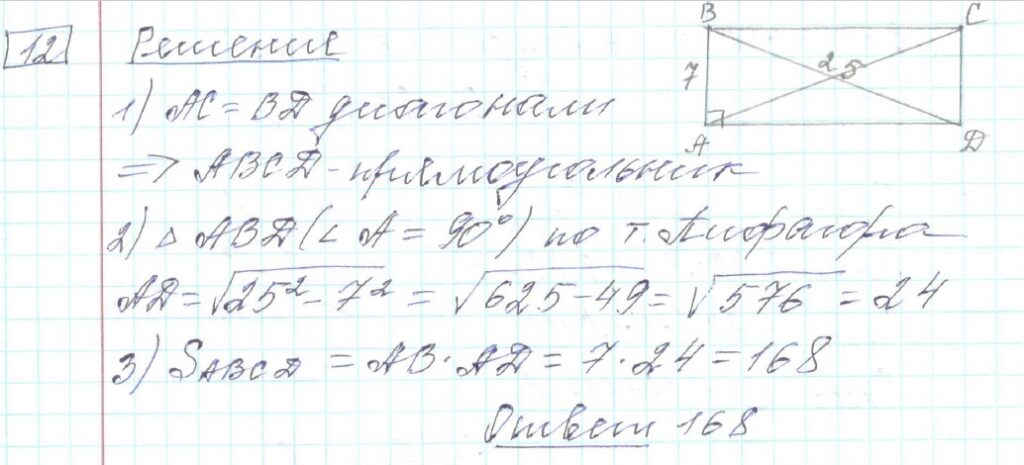 12 Решение
1) AC = BD диагонали
=> ABCD - прямоугольник
2) △ ABD (∠ A = 90°) по т. Пифагора
AD = √25² - 7² = √625 - 49 = √576 = 24
3) SABCD = AB · AD = 7 · 24 = 168
Ответ 168
B C
7 25
A D